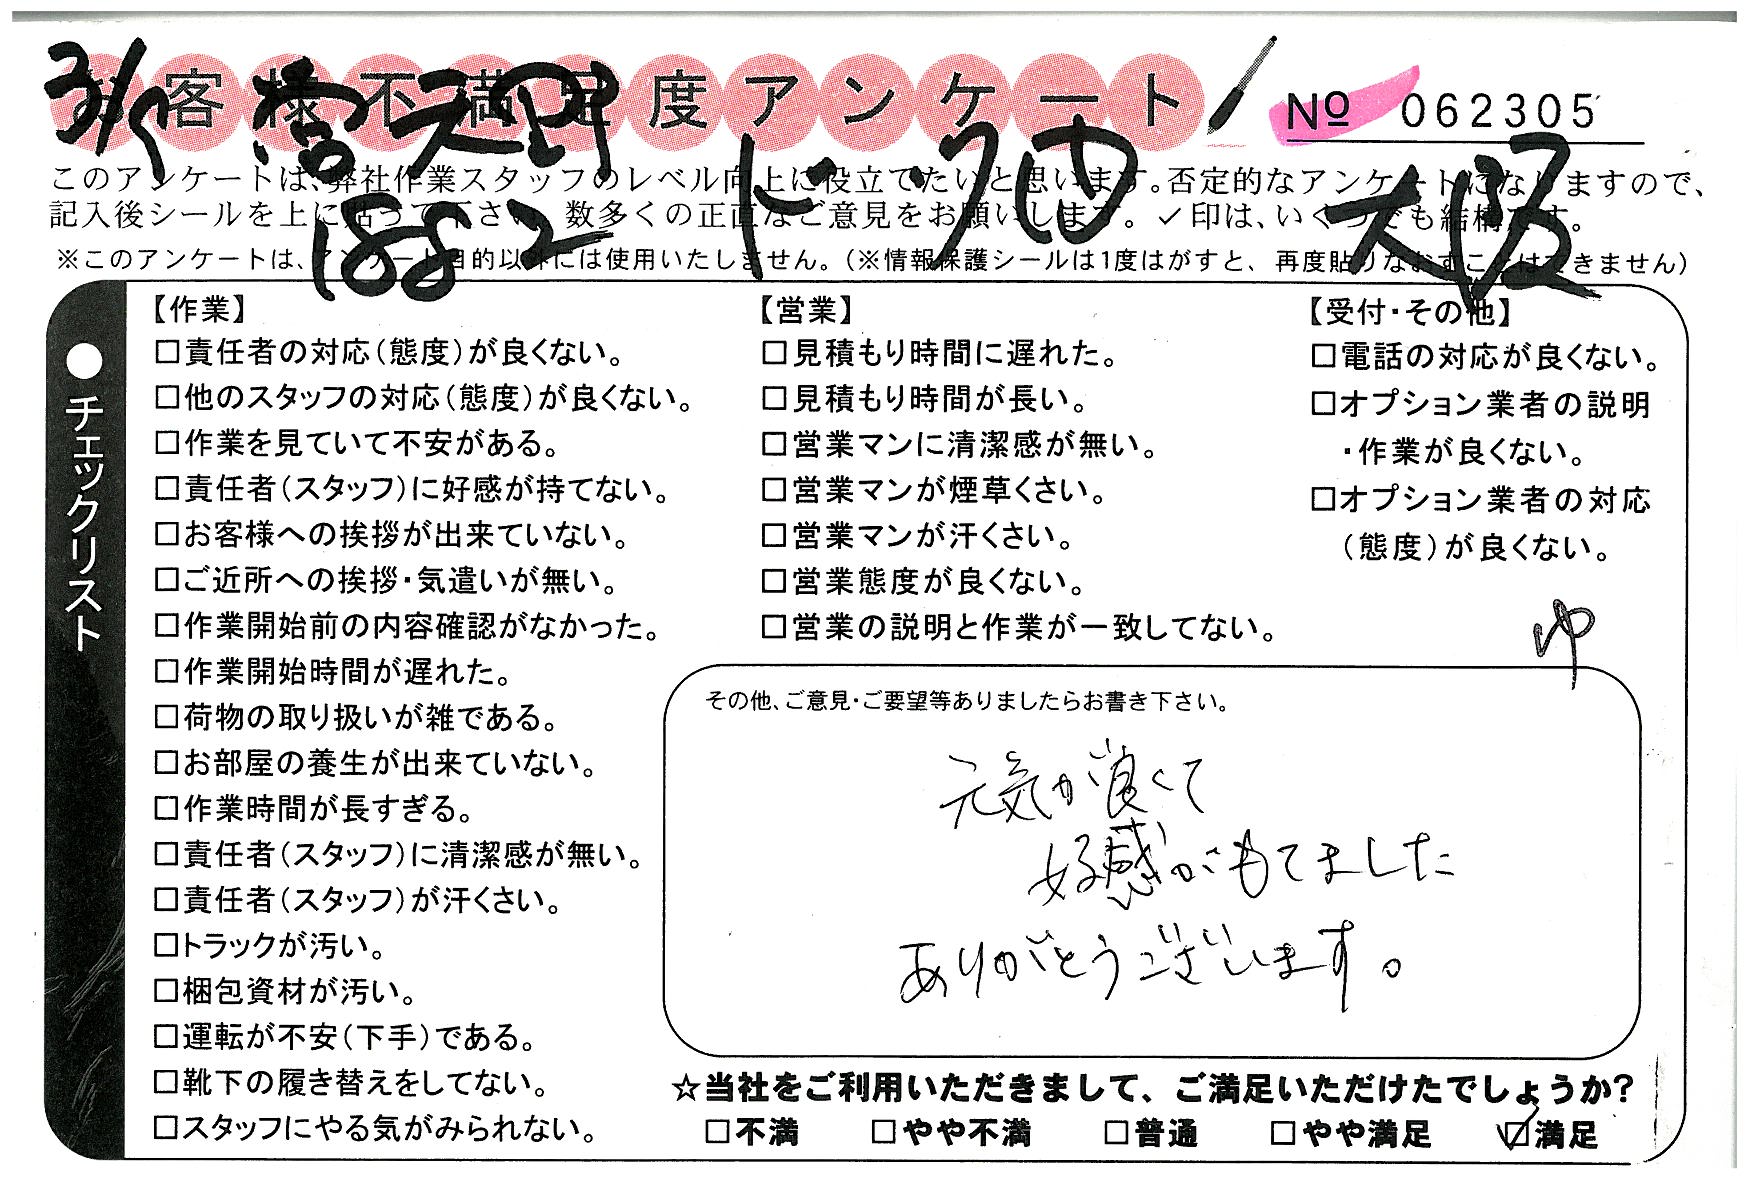 お客様不満足度アンケート
No 062305
3/7 高天野 ド ク由 大阪
1882
このアンケートは、弊社作業スタッフのレベル向上に役立てたいと思います。否定的なアンケートになりますので、
記入後シールを上に貼って下さい。数多くの正直なご意見をお願いします。✓印は、いくつでも結構です。
※このアンケートは、アンケート目的以外には使用いたしません。(※情報保護シールは1度はがすと、再度貼りなおすことはできません)
●チェックリスト
【作業】
□責任者の対応(態度)が良くない。
□他のスタッフの対応(態度)が良くない。
□作業を見ていて不安がある。
□責任者(スタッフ)に好感が持てない。
□お客様への挨拶が出来ていない。
□ご近所への挨拶・気遣いが無い。
□作業開始前の内容確認がなかった。
□作業開始時間が遅れた。
□荷物の取り扱いが雑である。
□お部屋の養生が出来ていない。
□作業時間が長すぎる。
□責任者(スタッフ)に清潔感が無い。
□責任者(スタッフ)が汗くさい。
□トラックが汚い。
□梱包資材が汚い。
□運転が不安(下手)である。
□靴下の履き替えをしてない。
□スタッフにやる気がみられない。
【営業】
□見積もり時間に遅れた。
□見積もり時間が長い。
□営業マンに清潔感が無い。
□営業マンが煙草くさい。
□営業マンが汗くさい。
□営業態度が良くない。
□営業の説明と作業が一致してない。
【受付・その他】
□電話の対応が良くない。
□オプション業者の説明
・作業が良くない。
□オプション業者の対応
(態度)が良くない。
ゆ
その他、ご意見・ご要望等ありましたらお書き下さい。
元気が良くて
好感がもてました
ありがとうございます。
☆当社をご利用いただきまして、ご満足いただけたでしょうか?
□不満 □やや不満 □普通 □やや満足 ☑満足